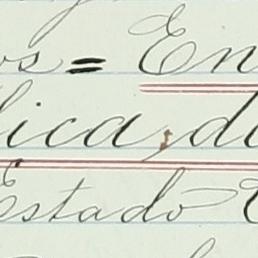 os = En
lica, de
Estado